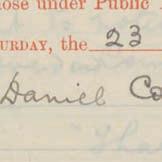 hose under Public
TURDAY, the 23
Daniel Co